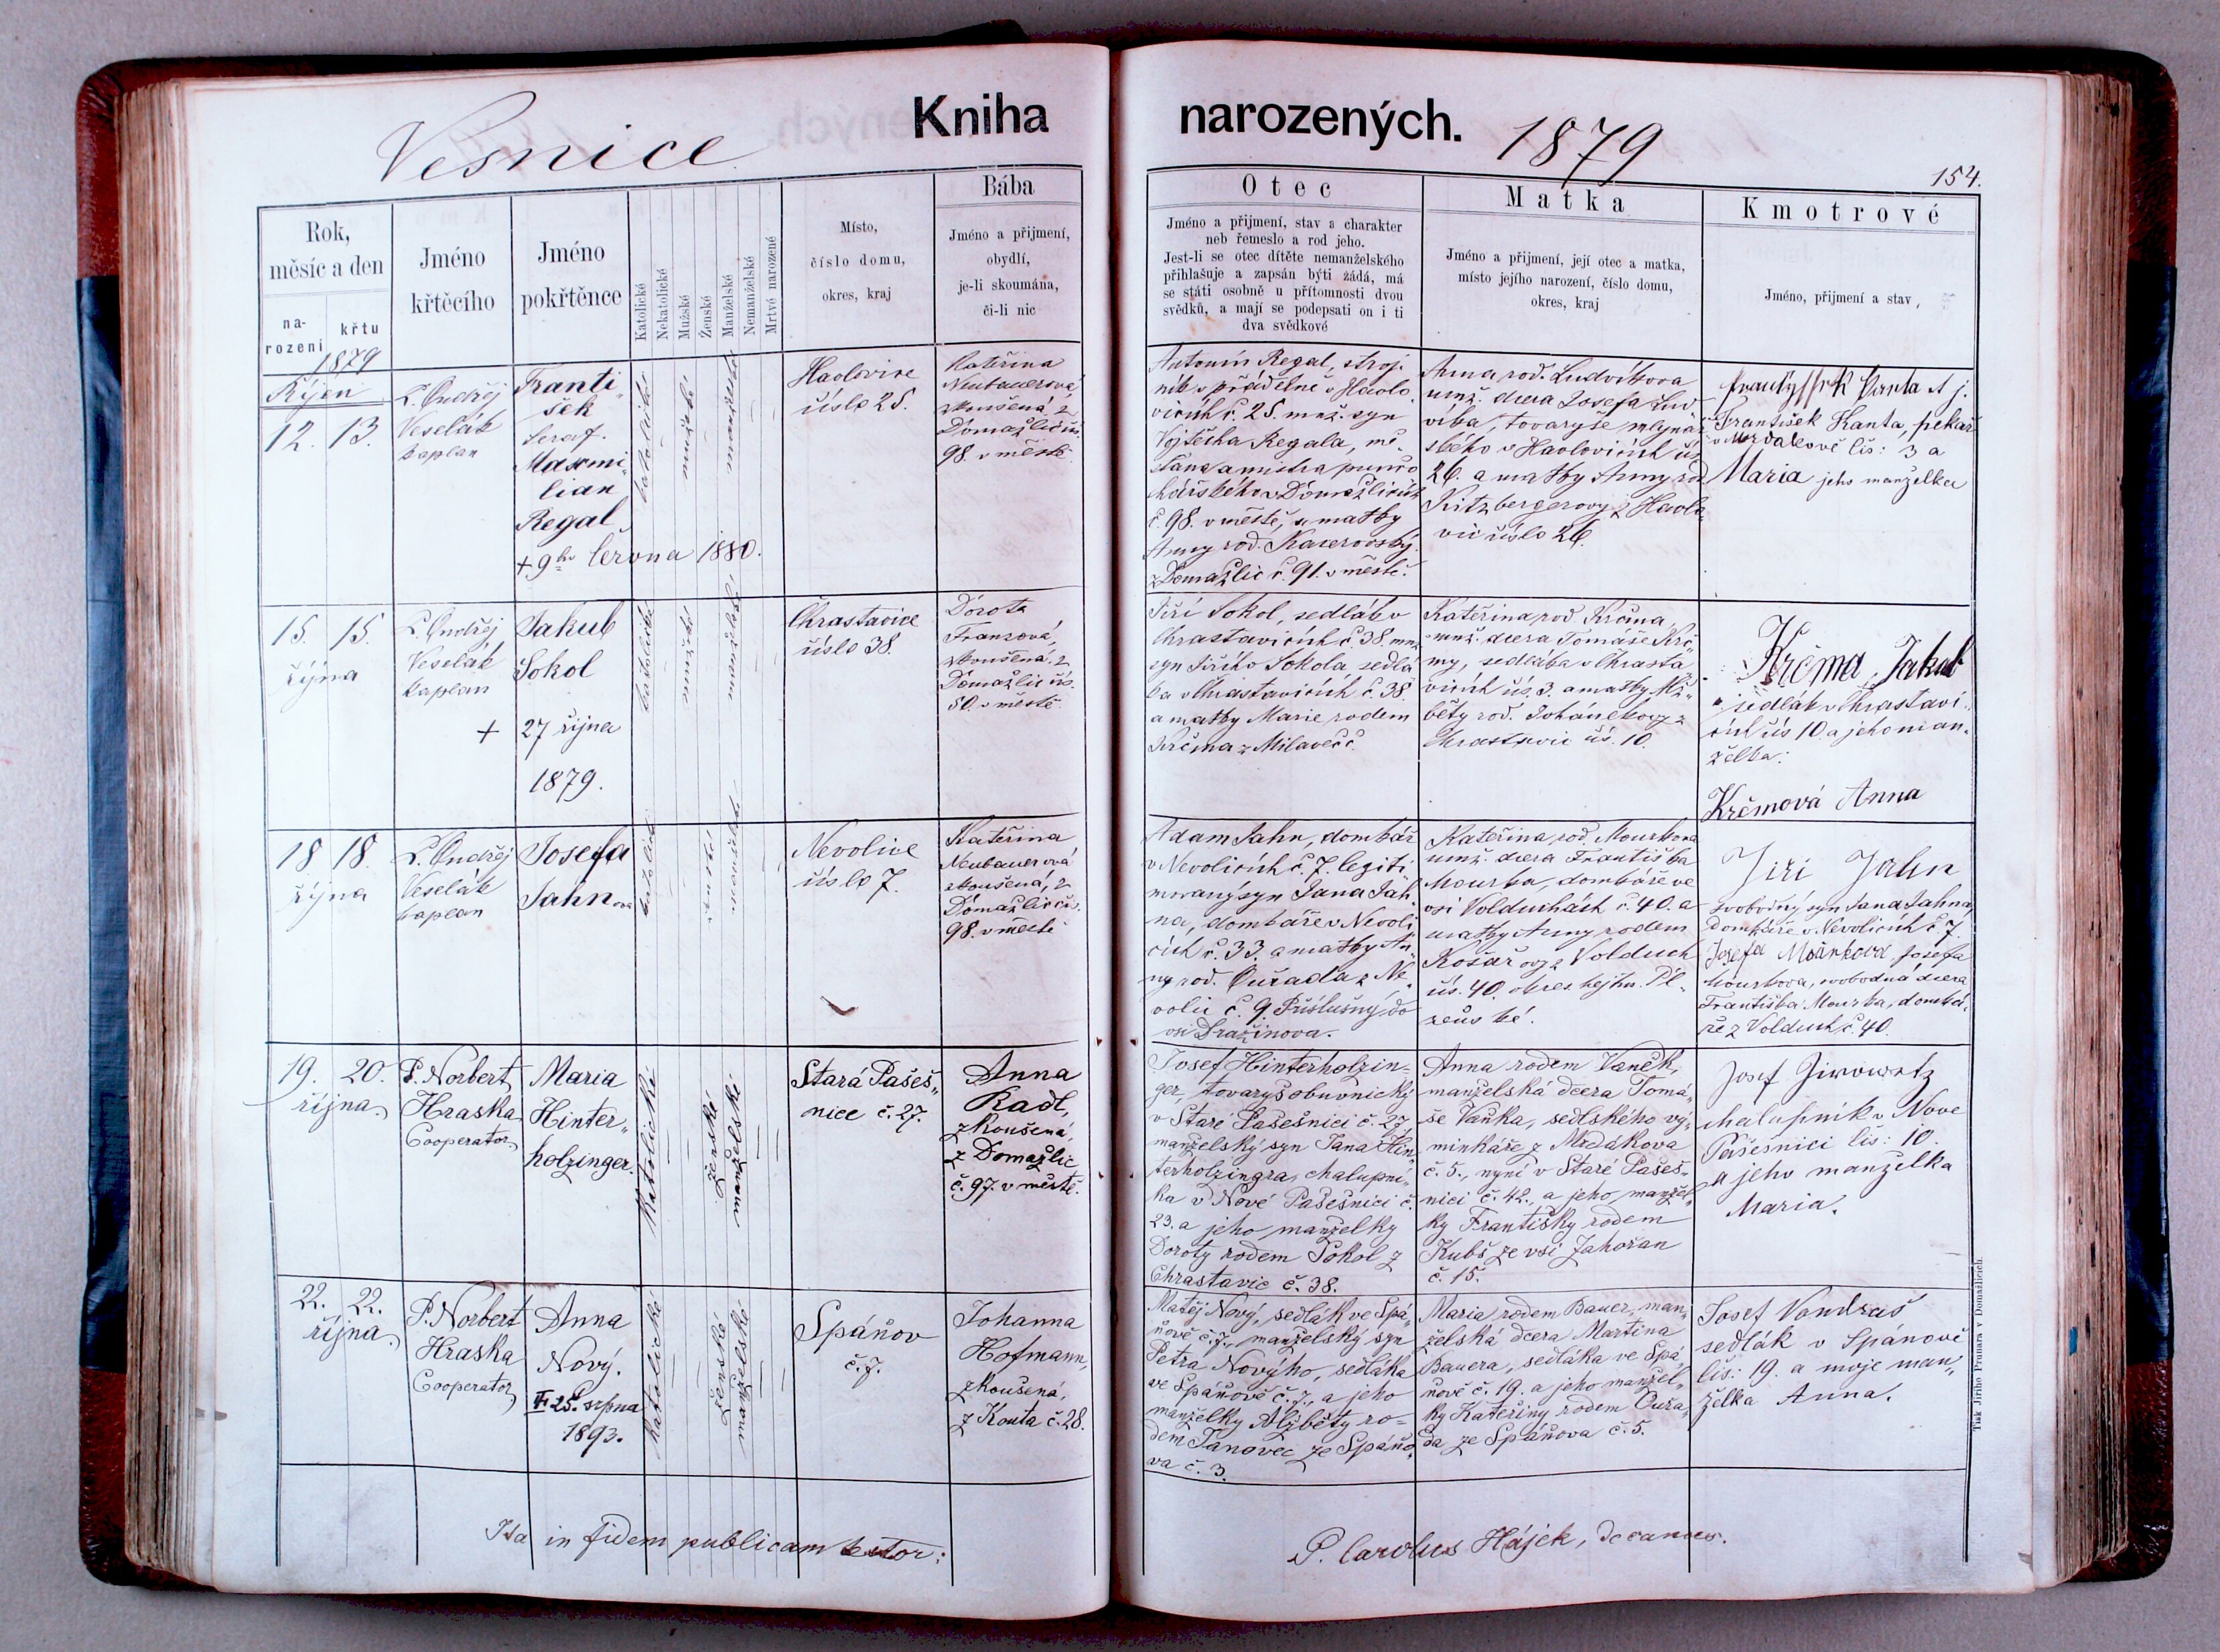 Vesnice
Kniha
narozených.
1879
154.
Rok,
měsíc a den
na-
rození
křtu
Jméno
křtěcího
Jméno
pokřtěnce
Katolické
Nekatolické
Mužské
Ženské
Manželské
Nemanželské
Mrtvé narozené
Místo,
číslo domu,
okres, kraj
Bába
Jméno a přijmení,
obydlí,
je-li skoumána,
či-li nic
Otec
Jméno a přijmení, stav a charakter
neb řemeslo a rod jeho.
Jest-li se otec dítěte nemanželského
přihlašuje a zapsán býti žádá, má
se státi osobně u přítomnosti dvou
svědků, a mají se podepsati on i ti
dva svědkové
Matka
Jméno a přijmení, její otec a matka,
místo jejího narození, číslo domu,
okres, kraj
Kmotrové
Jméno, přijmení a stav
1879
Říjen
12. 13.
P. Ondřej
Veselák
kaplan
Franti-
šek
Seraf.
Maxmi-
lian
Regal
+ 9ho června 1880.
katolické
mužské
manželské
Havlovice
číslo 25.
Kateřina
Neubauerová,
zkoušená, z
Domažlic čís.
98. v městě.
Antonín Regal, stroj-
ník v přádelně v Havlo-
vicích č. 25. manž. syn
Vojtěcha Regala, mě-
šťana a mistra punčo-
chářského v Domažlicích
č. 98. v městě, a matky
Anny rod. Kacerovský
z Domažlic č. 91. v městě.
Anna rod. Ludvíkova
manž. dcera Josefa Lud-
víka, tovaryše mlynář-
ského v Havlovicích čís.
26. a matky Anny rod.
Kitzbergerovy z Havlo-
vic číslo 26.
František Kanta, pekař
v Mrdakově čis: 3 a
Maria jeho manželka
15. 15.
října
P. Ondřej
Veselák
kaplan
Jakub
Sokol
+ 27 října
1879.
katolické
mužské
manželské
Chrastavice
číslo 38.
Dorota
Franzová,
zkoušená, z
Domažlic čís.
50. v městě
Jiří Sokol, sedlák v
Chrastavicích č. 38. man.
syn Jiřího Sokola, sedlá-
ka v Chrastavicích č. 38.
a matky Marie rodem
Krčma z Milaveč č.
Kateřina rod. Krčma,
manž. dcera Tomáše Krč-
my, sedláka v Chrasta-
vicích čís. 3. a matky Alž-
běty rod. Johánekovy z
Chrastavic čís. 10.
Krčma Jakub
sedlák v Chrastavi-
cích čís 10. a jeho man-
želka:
Krčmová Anna
18 18.
října
P. Ondřej
Veselák
kaplan
Josefa
Jahnova
katolické
ženské
manželské
Nevolice
číslo 7.
Kateřina
Neubauerová
zkoušená, z
Domažlic čís.
98. v městě
Adam Jahn, domkář
v Nevolicích č. 7. legiti-
movaný syn Jana Jah-
na, domkáře v Nevoli-
cích č. 33. a matky An-
ny rod. Čuřada z Ne-
volic č. 9. Příslušný do
vsi Dražinova.
Kateřina rod. Mourkova
manž. dcera Františka
Mourka, domkáře ve
vsi Volduchách č. 40. a
matky Anny rodem
Košař ovy z Volduch
čís. 40. okres hejtm. Pl-
zeňské.
Jiři Jahn
svobodný syn Jana Jahna,
domkáře v Nevolicích č 7.
Josefa Moůrkova Josefa
Mourkova, svobodná dcera
Františka Mourka, domká-
ře z Volduch č. 40.
19. 20.
října
P. Norbert
Hraska
Cooperator
Maria
Hinter-
holzinger.
katolické
ženské
manželské
Stará Pašeš-
nice č. 27.
Anna
Radl,
zkoušená,
z Domažlic
č. 97. v městě.
Josef Hinterholzin-
ger, tovaryš obuvnický
v Staré Pašešnici č. 27.,
manželský syn Jana Hin-
terholzingra, chalupní-
ka v Nové Pašešnici č.
23. a jeho manželky
Doroty rodem Sokol z
Chrastavic č. 38.
Anna rodem Vaněk,
manželská dcera Tomá-
še Vaňka, sedlského vý-
minkáře z Mrdákova
č. 5., nyní v Staré Pašeš-
nici č. 42., a jeho manžel-
ky Františky rodem
Kubš ze vsi Zahořan
č. 15.
Josef Jirowetz
chalupník v Nove
Pašešnici čis: 10.
a jeho manželka
Maria.
22. 22.
října
P. Norbert
Hraska
Cooperator
Anna
Nový.
25. srpna
1893.
katolické
ženské
manželské
Spáňov
č. 7.
Johanna
Hofmann,
zkoušená,
z Kouta č. 28.
Matěj Nový, sedlák ve Spá-
ňově č. 7., manželský syn
Petra Nového, sedláka
ve Spáňově č. 7., a jeho
manželky Alžběty ro-
dem Tanovec ze Spáňo-
va č. 3.
Maria rodem Bauer, man-
želská dcera Martina
Bauera, sedláka ve Spá-
ňově č. 19. a jeho manžel-
ky Kateřiny rodem Čuřa-
da ze Spáňova č. 5.
Josef Vondraš
sedlák v Spánově
čis: 19. a moje man-
želka Anna.
Ita in fidem publicam testor:
P. Carolus Hájek, decanus.
Tisk Jiřího Prunara v Domažlicích.